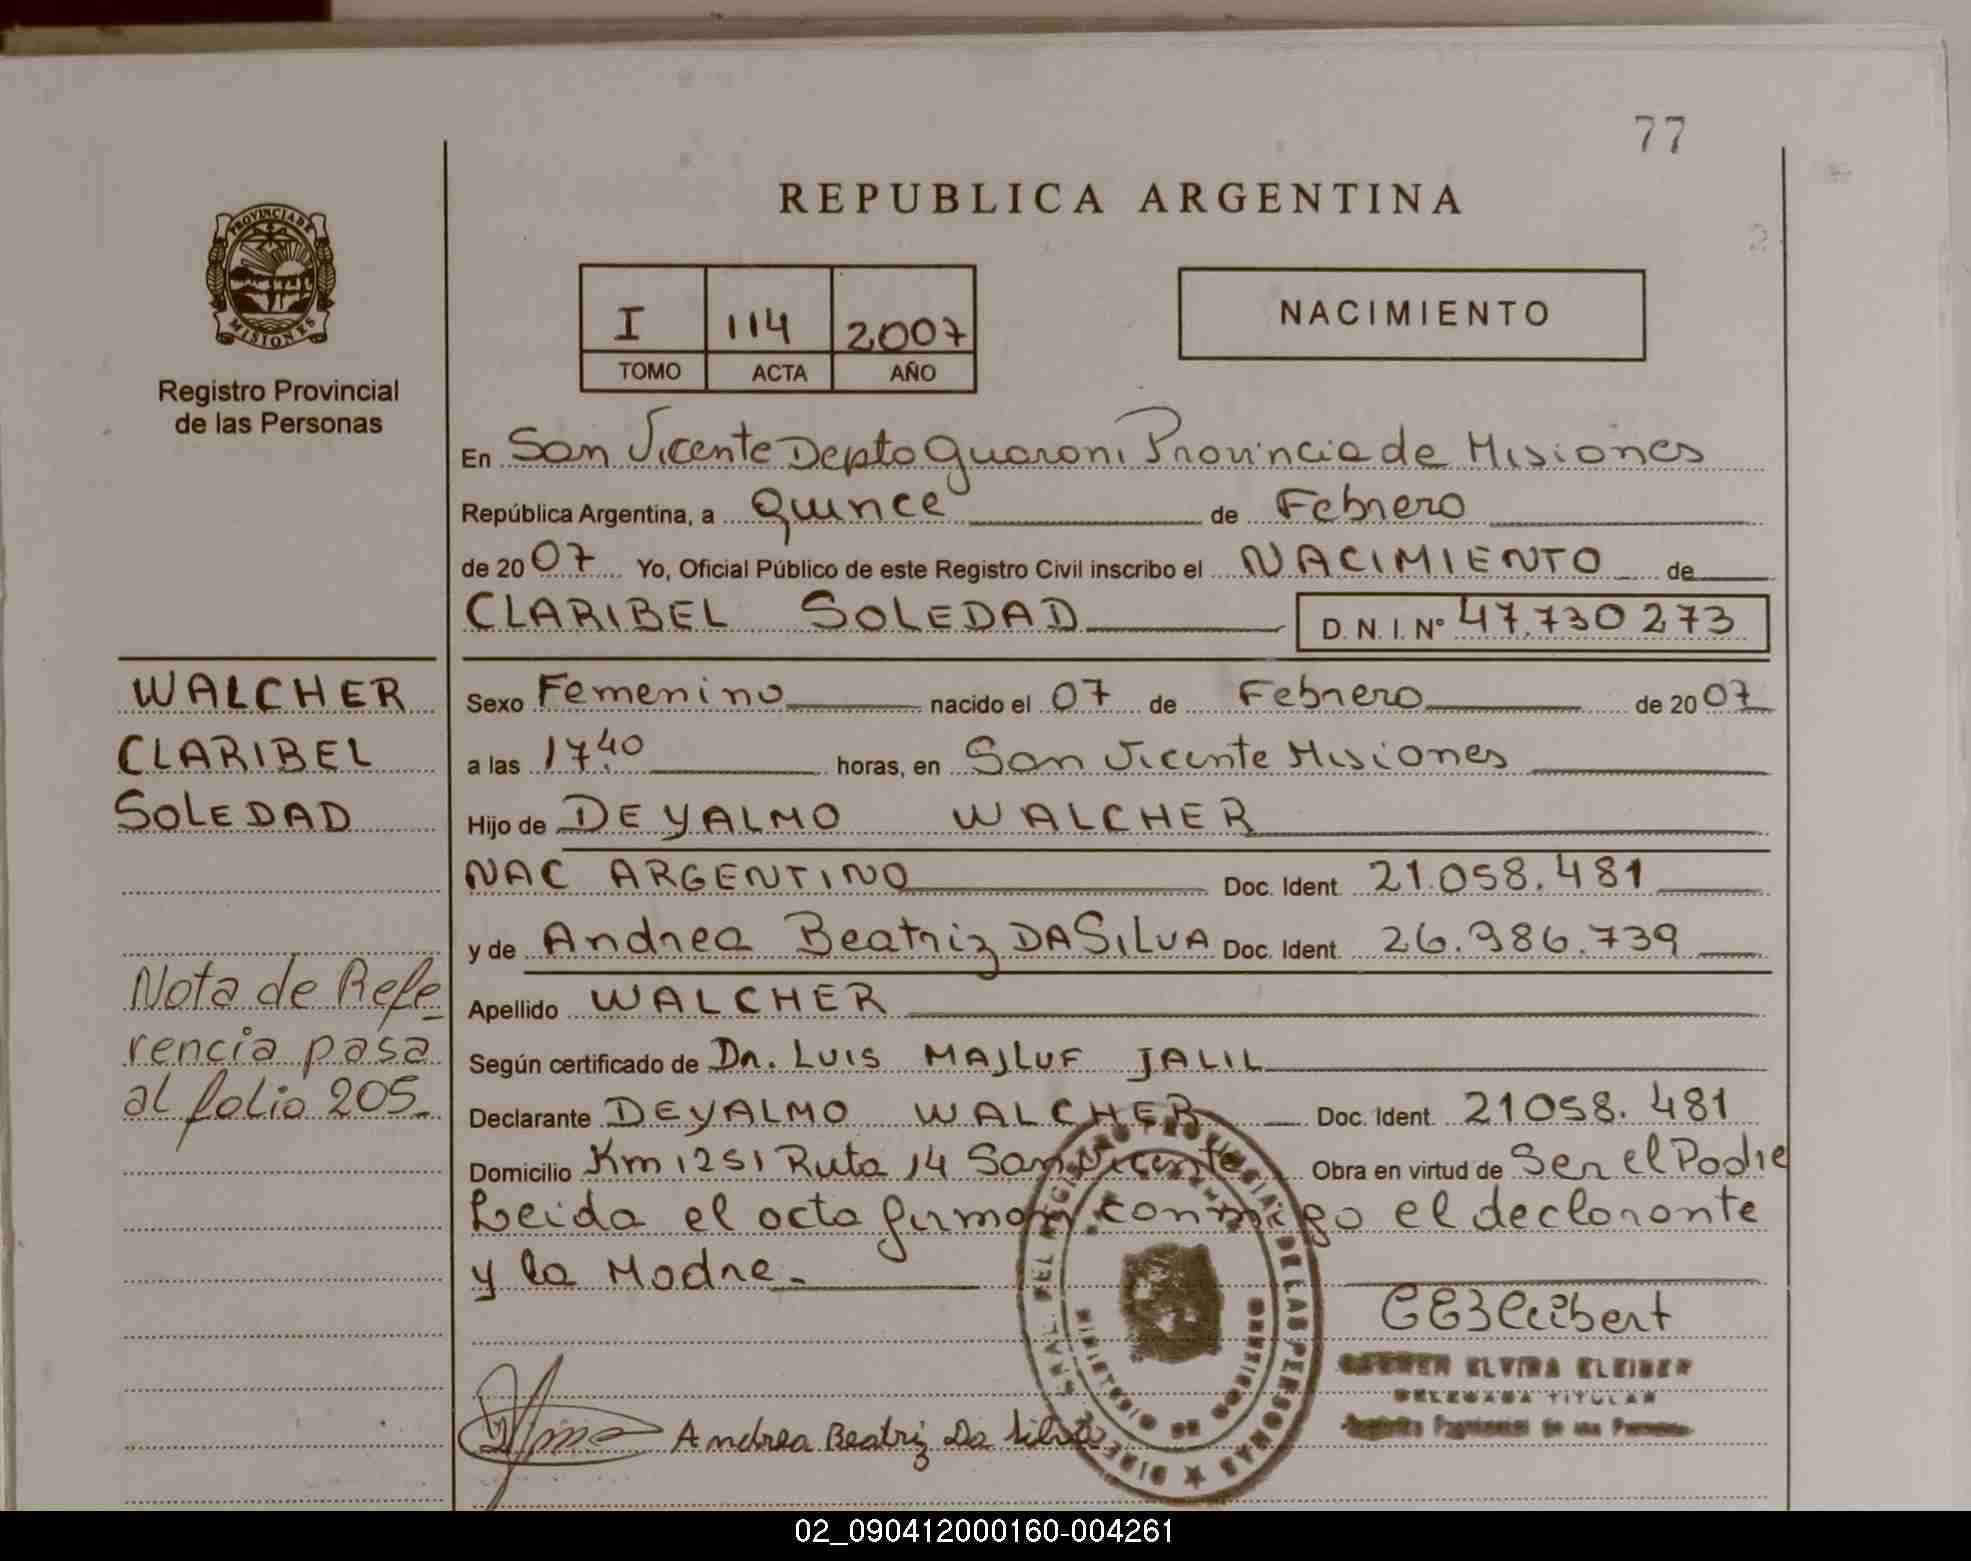 77
REPUBLICA ARGENTINA
PROVINCIA DE
MISIONES
Registro Provincial
de las Personas
I 114 2007
TOMO ACTA AÑO
NACIMIENTO
En San Vicente Depto Guarani Provincia de Misiones
República Argentina, a Quince de Febrero
de 2007 Yo, Oficial Público de este Registro Civil inscribo el NACIMIENTO de
CLARIBEL SOLEDAD D. N. I. Nº 47.730273
WALCHER
CLARIBEL
SOLEDAD
Sexo Femenino nacido el 07 de Febrero de 2007
a las 17.40 horas, en San Vicente Misiones
Hijo de DEYALMO WALCHER
NAC ARGENTINO Doc. Ident. 21.058.481
y de Andrea Beatriz DASILVA Doc. Ident. 26.986.739
Nota de Refe
rencia pasa
al folio 205.
Apellido WALCHER
Según certificado de Dr. LUIS MAJLUF JALIL
Declarante DEYALMO WALCHER Doc. Ident. 21058.481
Domicilio Km 1251 Ruta 14 San Vicente Obra en virtud de Ser el Padre
Leida el acta firman conmigo el declarante
y la Madre.-
Andrea Beatriz Da Silva
ELVIRA
DELEGADA TITULAR
DE LAS PERSONAS
MINISTERIO DE GOBIERNO
02_090412000160-004261